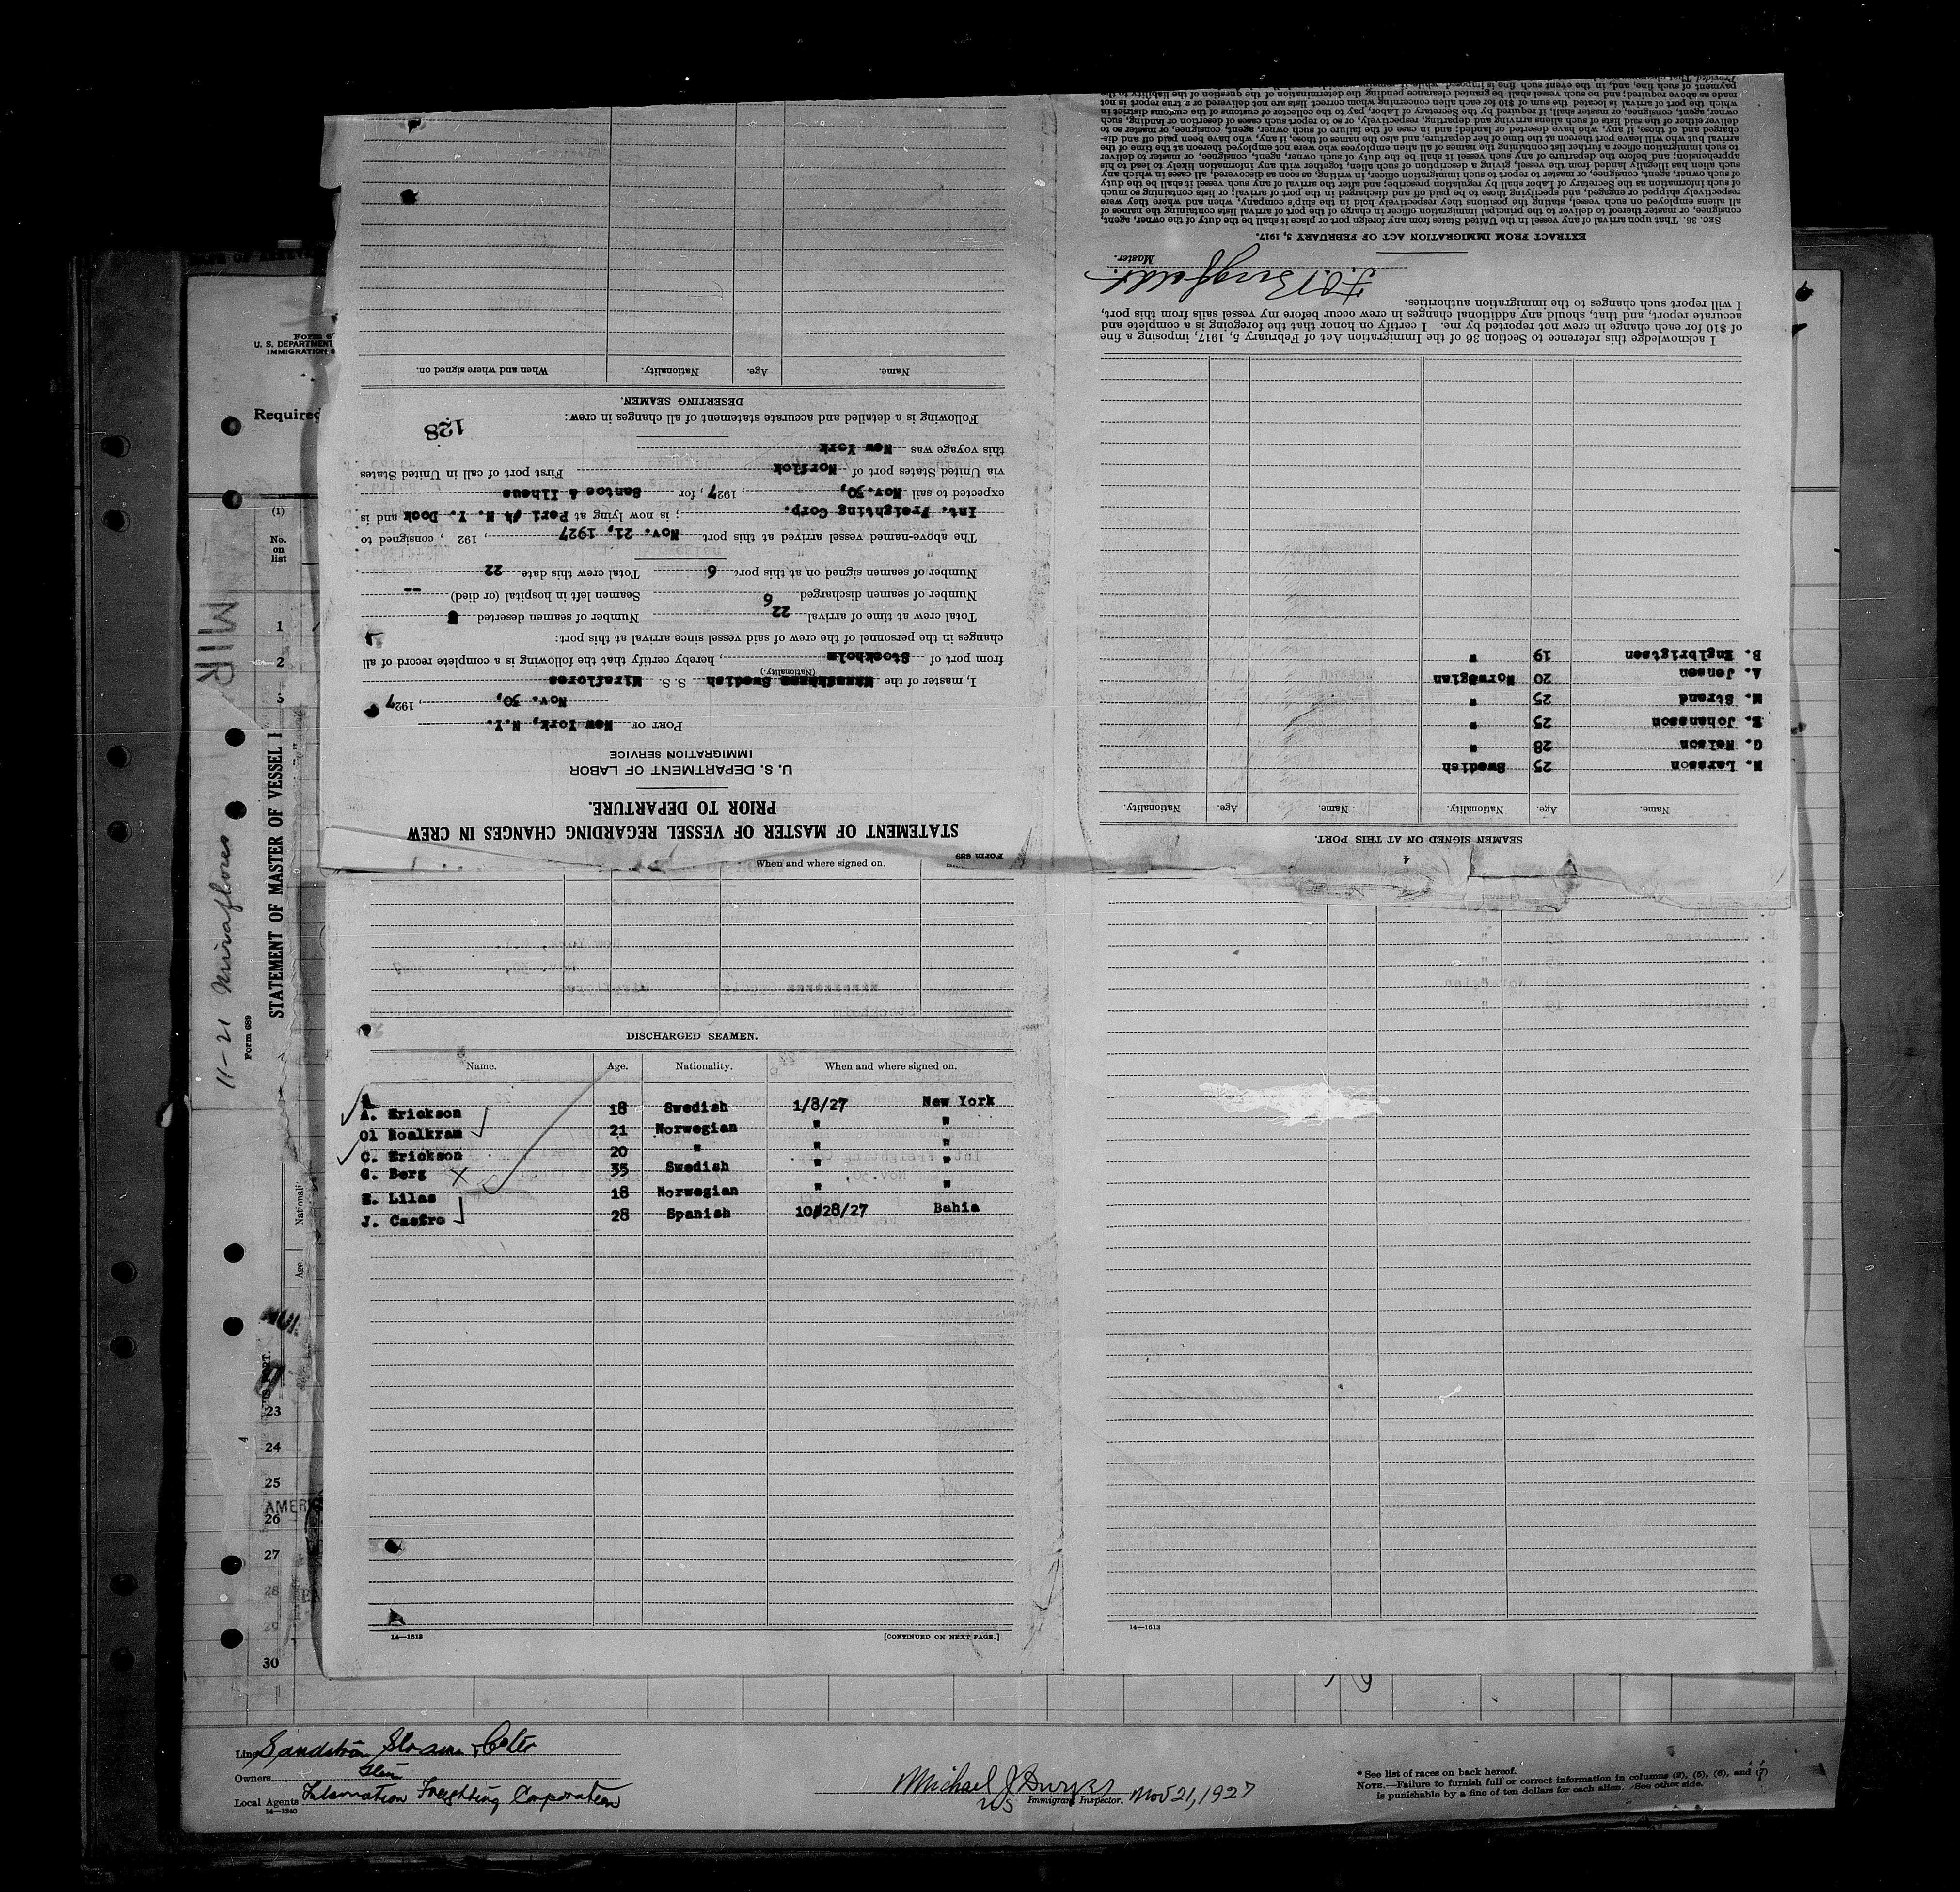 STATEMENT OF MASTER OF VESSEL REGARDING CHANGES IN CREW
PRIOR TO DEPARTURE.
U. S. DEPARTMENT OF LABOR
IMMIGRATION SERVICE
PORT OF New York, N.Y.
Nov. 30, , 1927
I, master of the Swedish S. S. Miraflores
(Nationality.)
from port of Stockholm , hereby certify that the following is a complete record of all
changes in the personnel of the crew of said vessel since arrival at this port:
Total crew at time of arrival 22 Number of seamen deserted
Number of seamen discharged 6 Seamen left in hospital (or died) --
Number of seamen signed on at this port 6 Total crew this date 22
The above-named vessel arrived at this port Nov. 21, 1927 , 192 , consigned to
Int. Freighting Corp. ; is now lying at Peri #4 N. Y. Dock and is
expected to sail Nov.30, , 1927 , for Santos & Ilheus
via United States port of Norflok First port of call in United States
this voyage was New York
128
Following is a detailed and accurate statement of all changes in crew:
DESERTING SEAMEN.
Name. Age. Nationality. When and where signed on.
Form 689
When and where signed on.
DISCHARGED SEAMEN.
Name. Age. Nationality. When and where signed on.
A. Erickson 18 Swedish 1/8/27 New York
Ol Roalkram 21 Norwegian " "
C. Erickson 20 " " "
G. Berg 35 Swedish " "
E. Lilas 18 Norwegian " "
J. Castro 28 Spanish 10/28/27 Bahia
14—1613
[CONTINUED ON NEXT PAGE.]
4
SEAMEN SIGNED ON AT THIS PORT.
Name. Age. Nationality. Name. Age. Nationality.
N. Larsson 25 Swedish
G. Nelson 28 "
E. Johansson 25 "
M. Strand 25 "
A. Jensen 20 Norwegian
B. Englbrigtsen 19 "
I acknowledge this reference to Section 36 of the Immigration Act of February 5, 1917, imposing a fine
of $10 for each change in crew not reported by me. I certify on honor that the foregoing is a complete and
accurate report, and that, should any additional changes in crew occur before my vessel sails from this port,
I will report such changes to the immigration authorities.
Master.
EXTRACT FROM IMMIGRATION ACT OF FEBRUARY 5, 1917.
SEC. 36. That upon arrival of any vessel in the United States from any foreign port or place it shall be the duty of the owner, agent,
consignee, or master thereof to deliver to the principal immigration officer in charge of the port of arrival lists containing the names of
all aliens employed on such vessel, stating the positions they respectively hold in the ship's company, when and where they were
respectively shipped or engaged, and specifying those to be paid off and discharged in the port of arrival; or lists containing so much
of such information as the Secretary of Labor shall by regulation prescribe; and after the arrival of any such vessel it shall be the duty
of such owner, agent, consignee, or master to report to such immigration officer, in writing, as soon as discovered, all cases in which any
such alien has illegally landed from the vessel, giving a description of such alien, together with any information likely to lead to his
apprehension; and before the departure of any such vessel it shall be the duty of such owner, agent, consignee, or master to deliver
to such immigration officer a further list containing the names of all alien employees who were not employed thereon at the time of the
arrival but who will leave port thereon at the time of her departure, and also the names of those, if any, who have been paid off and dis-
charged and of those, if any, who have deserted or landed; and in case of the failure of such owner, agent, consignee, or master so to
deliver either of the said lists of such aliens arriving and departing, respectively, or so to report such cases of desertion or landing, such
owner, agent, consignee, or master shall, if required by the Secretary of Labor, pay to the collector of customs of the customs district in
which the port of arrival is located the sum of $10 for each alien concerning whom correct lists are not delivered or a true report is not
made as above required; and no such vessel shall be granted clearance pending the determination of the question of the liability to the
payment of such fine, and, in the event such fine is imposed, while it remains
14—1613
U. S. DEPARTMENT
IMMIGRATION
Required
(1)
No.
on
list
1
2
3
MIR
11-21 Miraflores
Form 689
STATEMENT OF MASTER OF VESSEL
Age.
PORT.
4
23
24
25
AMERIC
26
27
28
29
30
Line Sandström
Owners
Local Agents Internation Freighting Corporation
14—1240
Michael J
Immigrant Inspector. Nov 21, 1927
* See list of races on back hereof.
NOTE.—Failure to furnish full or correct information in columns (2), (5), (6), and (7)
is punishable by a fine of ten dollars for each alien. See other side.